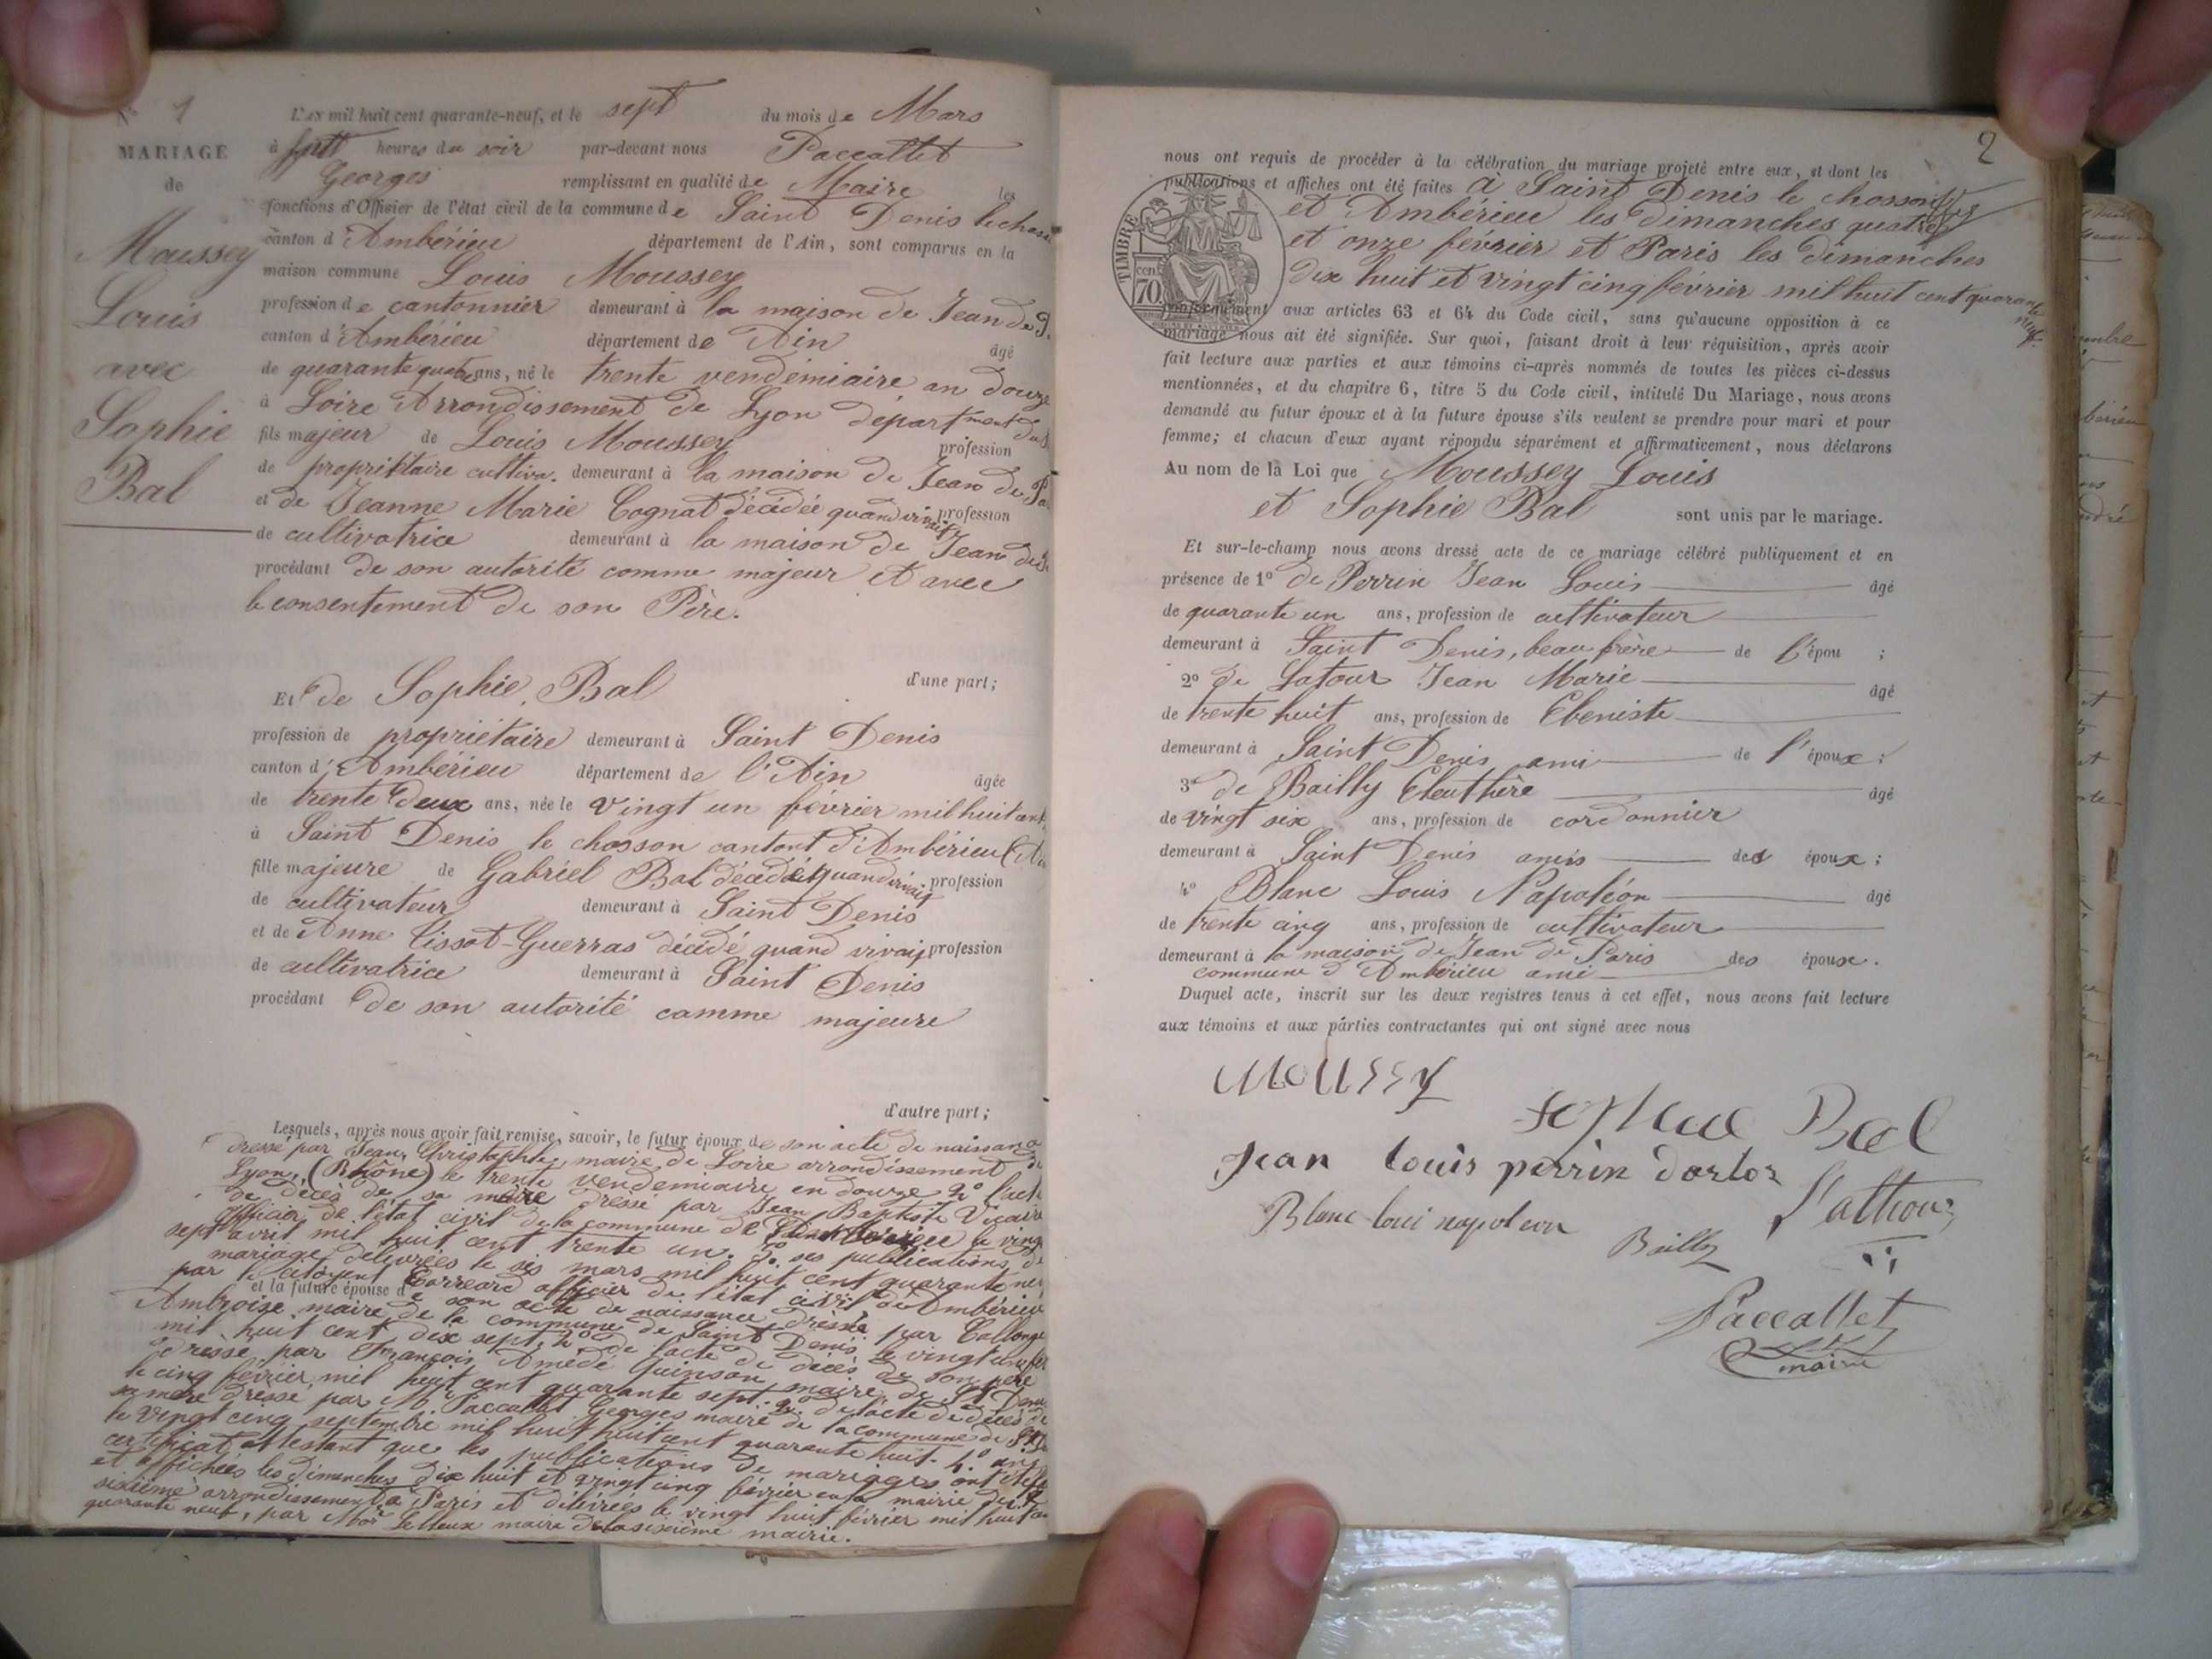 N° 1
MARIAGE
de
Moussey
Louis
avec
Sophie
Bal
L'an mil huit cent quarante-neuf, et le sept du mois de Mars
à sept heures du soir par-devant nous Paccallet
Georges remplissant en qualité de Maire les
fonctions d'Officier de l'état civil de la commune de Saint Denis le chosson
canton d'Ambérieu département de l'Ain, sont comparus en la
maison commune Louis Moussey
profession de cantonnier demeurant à la maison de Jean de P.
canton d'Ambérieu département de Ain âgé
de quarante quatre ans, né le trente vendémiaire an douze
à Loire Arrondissement de Lyon département du
fils majeur de Louis Moussey profession
de propriétaire cultiva. demeurant à la maison de Jean de Pa
et de Jeanne Marie Cognat décédée quand vivait profession
de cultivatrice demeurant à la maison de Jean de
procédant de son autorité comme majeur et avec
le consentement de son Père.
d'une part;
Et de Sophie Bal
profession de propriétaire demeurant à Saint Denis
canton d'Ambérieu département de l'Ain âgée
de trente deux ans, née le vingt un février mil huit cent
à Saint Denis le chosson cantont d'Ambérieu (Ain
fille majeure de Gabriel Bal décédé quand vivait profession
de cultivateur demeurant à Saint Denis
et de Anne Tissot-Guerras décédé quand vivait profession
de cultivatrice demeurant à Saint Denis
procédant de son autorité comme majeure
d'autre part;
Lesquels, après nous avoir fait remise, savoir, le futur époux de son acte de naissance
dressé par Jean Christophle, maire de Loire arrondissement de
Lyon, (Rhône) le trente vendemiaire en douze 2° l'acte
de décès de sa mère dressé par Jean Baptiste Vicaire
officier de l'état civil de la commune de Ambérieu le vingt
sept avril mil huit cent trente un. 3° ses publications de
mariage délivrées le six mars mil huit cent quarante neuf
par le citoyent Carreard officier de l'état civil de Ambérieu
et la future épouse de son acte de naissance dressé par Collonge
Ambroise maire de la commune de Saint Denis le vingt un fév
mil huit cent dix sept, 2° de l'acte de décès de son père
dressé par François Amédé Quinson maire de St Denis
le cinq février mil huit cent quarante sept. 3° de l'acte de décès de
sa mère dressé par Mr Paccallet Georges maire de la commune de St D
le vingt cinq septembre mil huit huit cent quarante huit. 4° un
certificat attestant que les publications de mariages ont été f
et affichées les dimanches dix huit et vingt cinq février en la mairie du
sixième arrondissement à Paris et délivrées le vingt huit février mil huit cent
quarante neuf, par Mor Lelleux maire de la sixième mairie.
2
nous ont requis de procéder à la célébration du mariage projeté entre eux, et dont les
publications et affiches ont été faites à Saint Denis le chosson
et Ambérieu les dimanches quatre
et onze février et Paris les dimanches
dix huit et vingt cinq février mil huit cent quarante
neuf.
TIMBRE
70
conformément aux articles 63 et 64 du Code civil, sans qu'aucune opposition à ce
mariage nous ait été signifiée. Sur quoi, faisant droit à leur réquisition, après avoir
fait lecture aux parties et aux témoins ci-après nommés de toutes les pièces ci-dessus
mentionnées, et du chapitre 6, titre 5 du Code civil, intitulé Du Mariage, nous avons
demandé au futur époux et à la future épouse s'ils veulent se prendre pour mari et pour
femme; et chacun d'eux ayant répondu séparément et affirmativement, nous déclarons
Au nom de la Loi que Moussey Louis
et Sophie Bal sont unis par le mariage.
Et sur-le-champ nous avons dressé acte de ce mariage célébré publiquement et en
présence de 1° de Perrin Jean Louis âgé
de quarante un ans, profession de cultivateur
demeurant à Saint Denis, beau frère de l'épou ;
2° de Latour Jean Marie âgé
de trente huit ans, profession de Ebeniste
demeurant à Saint Denis ami de l'époux;
3° de Bailly Eleuthère âgé
de vingt six ans, profession de cordonnier
demeurant à Saint Denis amis des époux;
4° Blanc Louis Napoléon âgé
de trente cinq ans, profession de cultivateur
demeurant à la maison de Jean de Paris des époux.
commune d'Ambérieu ami
Duquel acte, inscrit sur les deux registres tenus à cet effet, nous avons fait lecture
aux témoins et aux parties contractantes qui ont signé avec nous
Moussy
Sophie Bal
Jean louis perrin dorlor
Blanc loui napoleon
Lathour
Bailly
Paccallet
maire